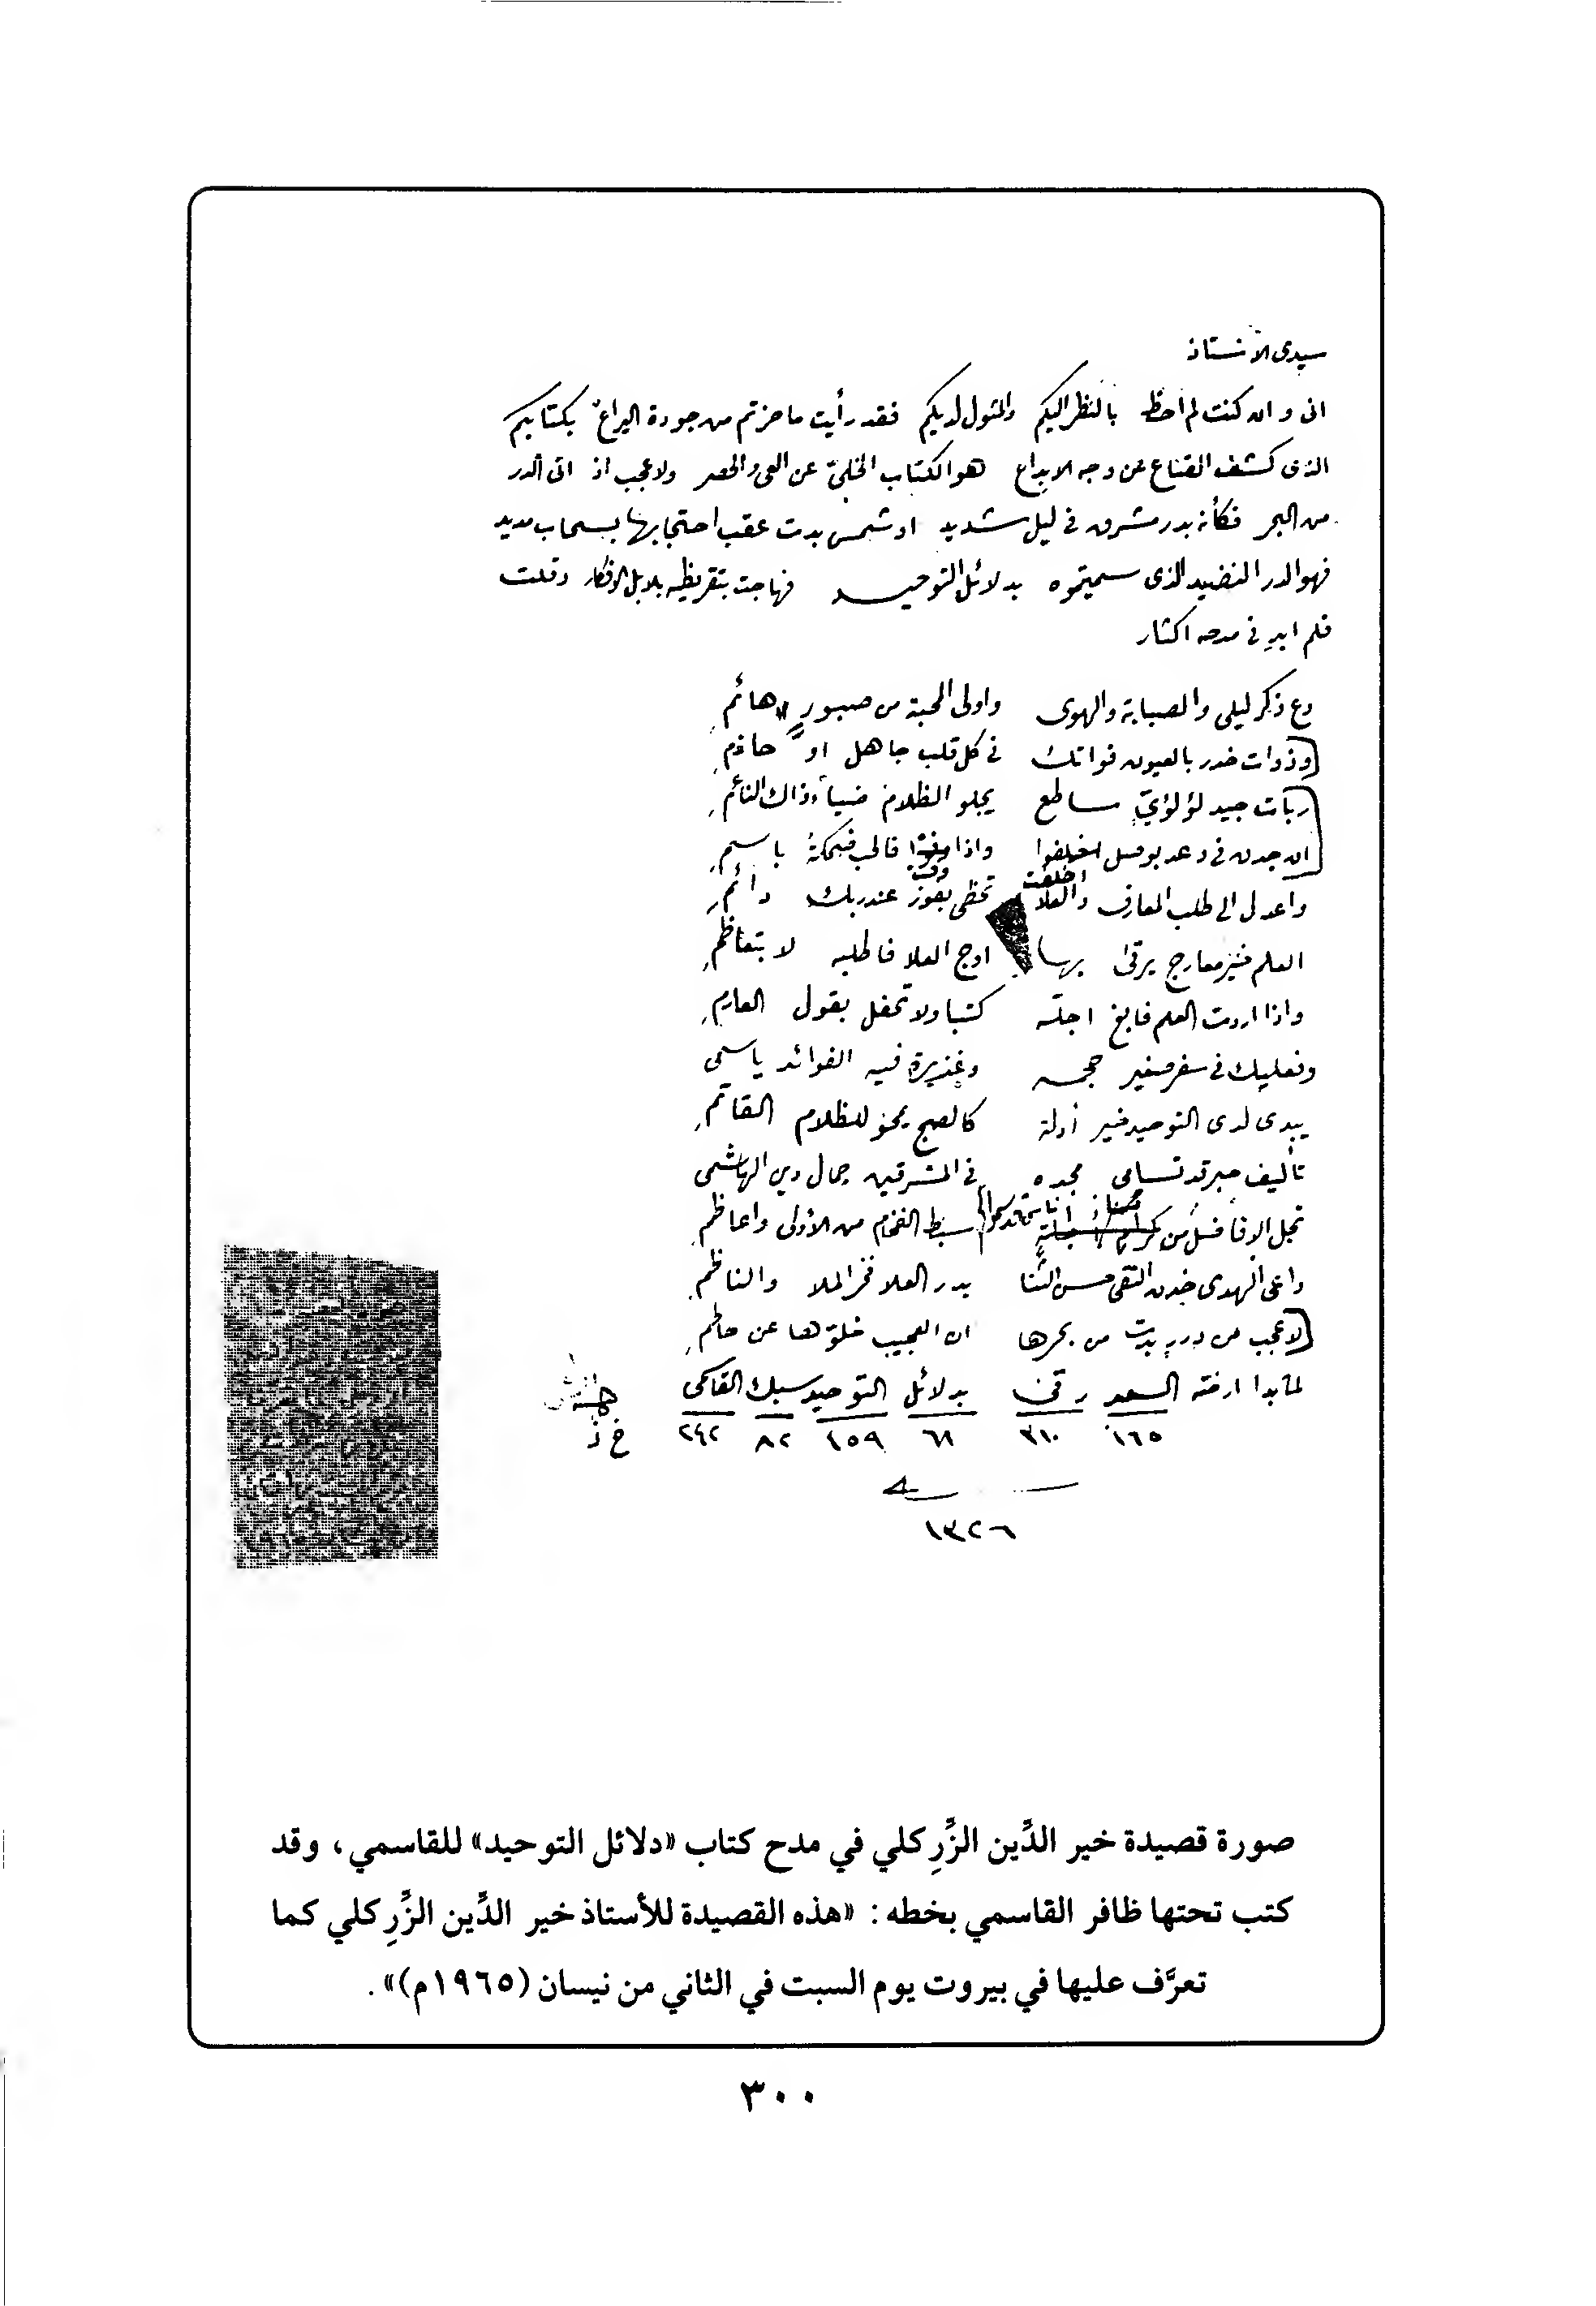 سيدي الأستاذ
اني وان كنت لم احظ بالنظر اليكم والمثول لديكم فقد رأيت ما حزتم من جودة اليراع بكتابكم
الذي كشف القناع عن وجه الابداع هو الكتاب الخليّ عن العي والحصر ولا عجب اذ اتى الدر
من البحر فكأنه بدر مشرق في ليل شديد او شمس بدت عقب احتجابها بسحاب مديد
فهو الدر النضيد الذي سميتموه بدلائل التوحيد فهاجت بتقريظه بلابل الافكار وقلت
فلم ابد في مدحه اكثار
دع ذكر ليلى والصبابة والهوى واولى المحبة من صبور هائم
وذوات خدر بالعيون فواتك في كل قلب جاهل او حازم
ربات جيد لؤلؤيّ ساطع يجلو الظلام ضياء ذاك الناعم
ان جدن في وعد بوصل اخلفوا واذا فالحب ضحكة باسم
اخلفت
واعدل الى طلب المعارف والعلا تحظى بفوز عند ربك دائم
العلم خير معارج يرقى بها اوج العلا فاطلبه لا بتعاظم
واذا اردت العلم فابغ اجلّه كتبا ولا تحفل بقول العارم
وفعليك في سفر صغير حجمه وغزيرة فيه الفوائد ياسمي
يبدي لدى التوحيد خير أدلة كالصبح يمحو للظلام القاتم
تأليف حبر قد تسامى مجده في المشرقين جمال دين الهاشمي
نجل الافاضل من كرام سبط الفخام من الأولى واعاظم
داعي الهدى خدن التقى حسن الثنا بدر العلا فخر الملا والناظم
لا عجب من درر بدت من بحرها ان العجيب خلوّها عن حاطم
لما بدا ارخته السعد رقى بدلائل التوحيد سبك القاسمي
١٦٥ ٣١٠ ٦٨ ٤٥٩ ٨٢ ٢٤٢
خ ز
سنة
١٣٢٦
صورة قصيدة خير الدِّين الزِّرِكلي في مدح كتاب «دلائل التوحيد» للقاسمي، وقد
كتب تحتها ظافر القاسمي بخطه: «هذه القصيدة للأستاذ خير الدِّين الزِّرِكلي كما
تعرَّف عليها في بيروت يوم السبت في الثاني من نيسان (١٩٦٥م)».
٣٠٠